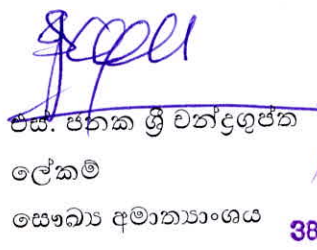 එස්. ජනක ශ්‍රී චන්ද්‍රගුප්ත
ලේකම්
සෞඛ්‍ය අමාත්‍යාංශය
38